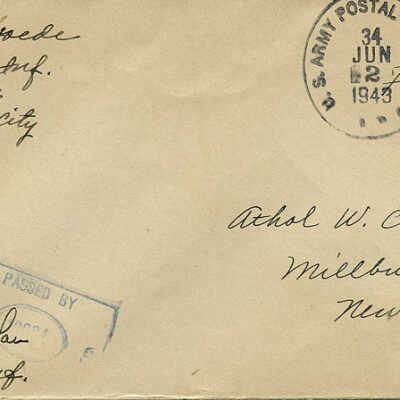 Inf.
City
U. S. ARMY POSTAL
34
JUN
2
1943
Athol W. C
Millbu
New
PASSED BY
S
Inf.